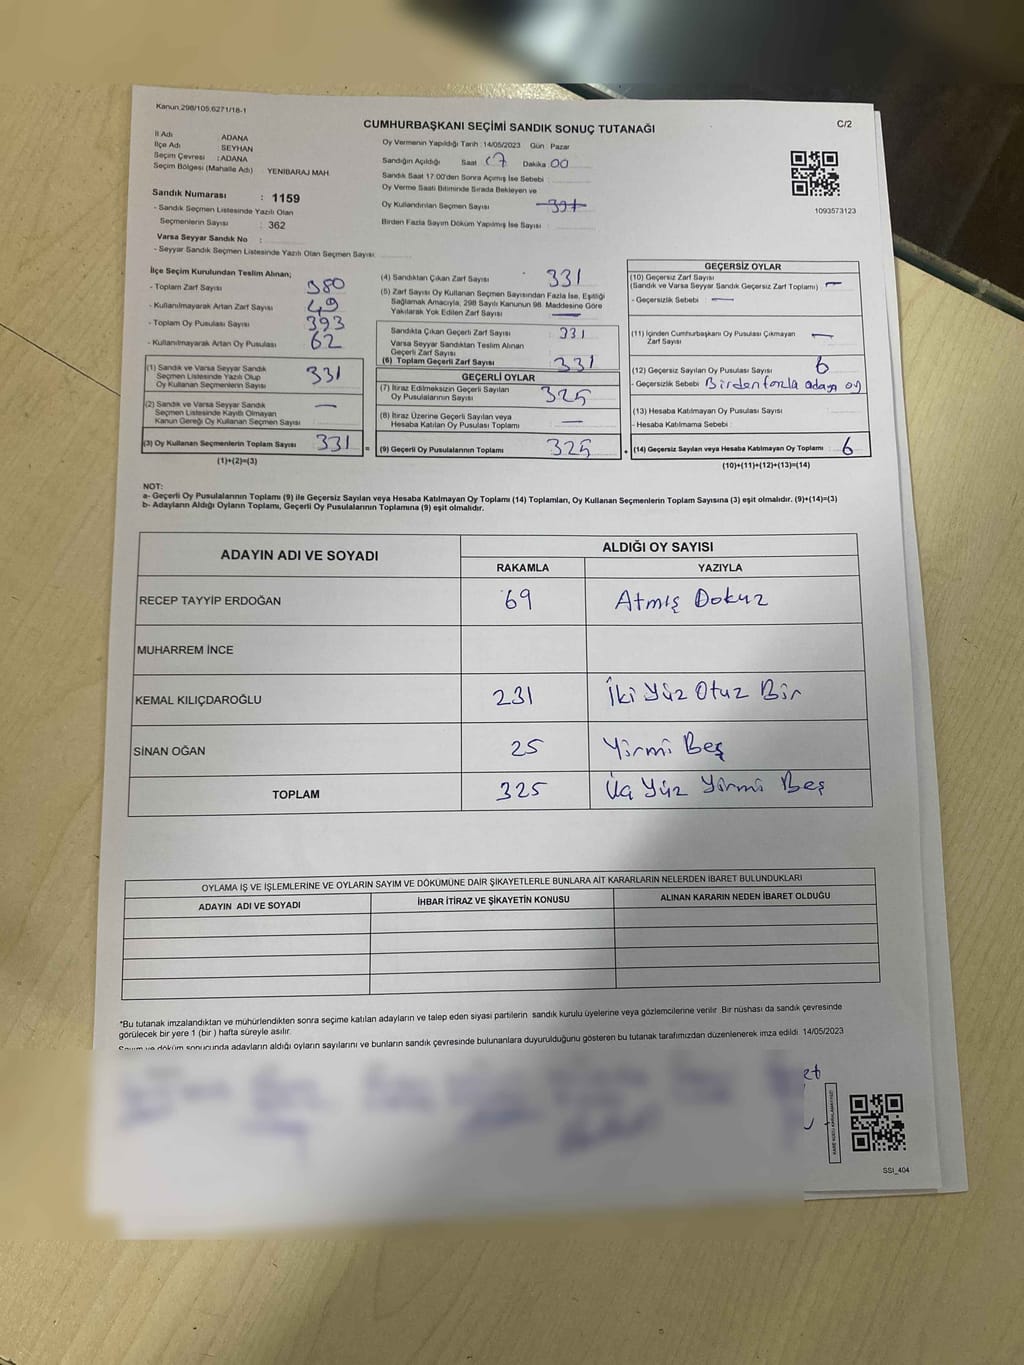 Kanun.298/105.6271/18-1
CUMHURBAŞKANI SEÇİMİ SANDIK SONUÇ TUTANAĞI
C/2
İl Adı : ADANA
İlçe Adı : SEYHAN
Seçim Çevresi : ADANA
Seçim Bölgesi (Mahalle Adı) YENİBARAJ MAH.
Sandık Numarası : 1159
- Sandık Seçmen Listesinde Yazılı Olan
Seçmenlerin Sayısı : 362
Varsa Seyyar Sandık No :
- Seyyar Sandık Seçmen Listesinde Yazılı Olan Seçmen Sayısı:
Oy Vermenin Yapıldığı Tarih :14/05/2023 Gün Pazar
Sandığın Açıldığı Saat 17 Dakika 00
Sandık Saat 17:00'den Sonra Açımış İse Sebebi :
Oy Verme Saati Bitiminde Sırada Bekleyen ve
Oy Kullandırılan Seçmen Sayısı
Birden Fazla Sayım Döküm Yapılmış İse Sayısı :
1093573123
İlçe Seçim Kurulundan Teslim Alınan;
- Toplam Zarf Sayısı 380
- Kullanılmayarak Artan Zarf Sayısı 49
- Toplam Oy Pusulası Sayısı 393
- Kullanılmayarak Artan Oy Pusulası 62
(1) Sandık ve Varsa Seyyar Sandık
Seçmen Listesinde Yazılı Olup
Oy Kullanan Seçmenlerin Sayısı 331
(2) Sandık ve Varsa Seyyar Sandık
Seçmen Listesinde Kayıtlı Olmayan
Kanun Gereği Oy Kullanan Seçmen Sayısı —
(3) Oy Kullanan Seçmenlerin Toplam Sayısı 331 =
(1)+(2)=(3)
(4) Sandıktan Çıkan Zarf Sayısı 331
(5) Zarf Sayısı Oy Kullanan Seçmen Sayısından Fazla İse, Eşitliği
Sağlamak Amacıyla, 298 Sayılı Kanunun 98. Maddesine Göre
Yakılarak Yok Edilen Zarf Sayısı —
Sandıkta Çıkan Geçerli Zarf Sayısı 331
Varsa Seyyar Sandıktan Teslim Alınan
Geçerli Zarf Sayısı
(6) Toplam Geçerli Zarf Sayısı 331
GEÇERLİ OYLAR
(7) İtiraz Edilmeksizin Geçerli Sayılan
Oy Pusulalarının Sayısı 325
(8) İtiraz Üzerine Geçerli Sayılan veya
Hesaba Katılan Oy Pusulası Toplamı —
(9) Geçerli Oy Pusulalarının Toplamı 325 +
GEÇERSİZ OYLAR
(10) Geçersiz Zarf Sayısı
(Sandık ve Varsa Seyyar Sandık Geçersiz Zarf Toplamı) —
- Geçersizlik Sebebi : —
(11) İçinden Cumhurbaşkanı Oy Pusulası Çıkmayan
Zarf Sayısı —
(12) Geçersiz Sayılan Oy Pusulası Sayısı 6
- Geçersizlik Sebebi : Birden fazla adaya oy
(13) Hesaba Katılmayan Oy Pusulası Sayısı
- Hesaba Katılmama Sebebi :
(14) Geçersiz Sayılan veya Hesaba Katılmayan Oy Toplamı 6
(10)+(11)+(12)+(13)=(14)
NOT:
a- Geçerli Oy Pusulalarının Toplamı (9) ile Geçersiz Sayılan veya Hesaba Katılmayan Oy Toplamı (14) Toplamları, Oy Kullanan Seçmenlerin Toplam Sayısına (3) eşit olmalıdır. (9)+(14)=(3)
b- Adayların Aldığı Oyların Toplamı, Geçerli Oy Pusulalarının Toplamına (9) eşit olmalıdır.
ADAYIN ADI VE SOYADI ALDIĞI OY SAYISI
RAKAMLA YAZIYLA
RECEP TAYYİP ERDOĞAN 69 Atmış Dokuz
MUHARREM İNCE
KEMAL KILIÇDAROĞLU 231 İki Yüz Otuz Bir
SİNAN OĞAN 25 Yirmi Beş
TOPLAM 325 Üç Yüz Yirmi Beş
OYLAMA İŞ VE İŞLEMLERİNE VE OYLARIN SAYIM VE DÖKÜMÜNE DAİR ŞİKAYETLERLE BUNLARA AİT KARARLARIN NELERDEN İBARET BULUNDUKLARI
ADAYIN ADI VE SOYADI İHBAR İTİRAZ VE ŞİKAYETİN KONUSU ALINAN KARARIN NEDEN İBARET OLDUĞU
*Bu tutanak imzalandıktan ve mühürlendikten sonra seçime katılan adayların ve talep eden siyasi partilerin sandık kurulu üyelerine veya gözlemcilerine verilir .Bir nüshası da sandık çevresinde
görülecek bir yere 1 (bir ) hafta süreyle asılır.
Sayım ve döküm sonucunda adayların aldığı oyların sayılarını ve bunların sandık çevresinde bulunanlara duyurulduğunu gösteren bu tutanak tarafımızdan düzenlenerek imza edildi. 14/05/2023
et
SSI_404